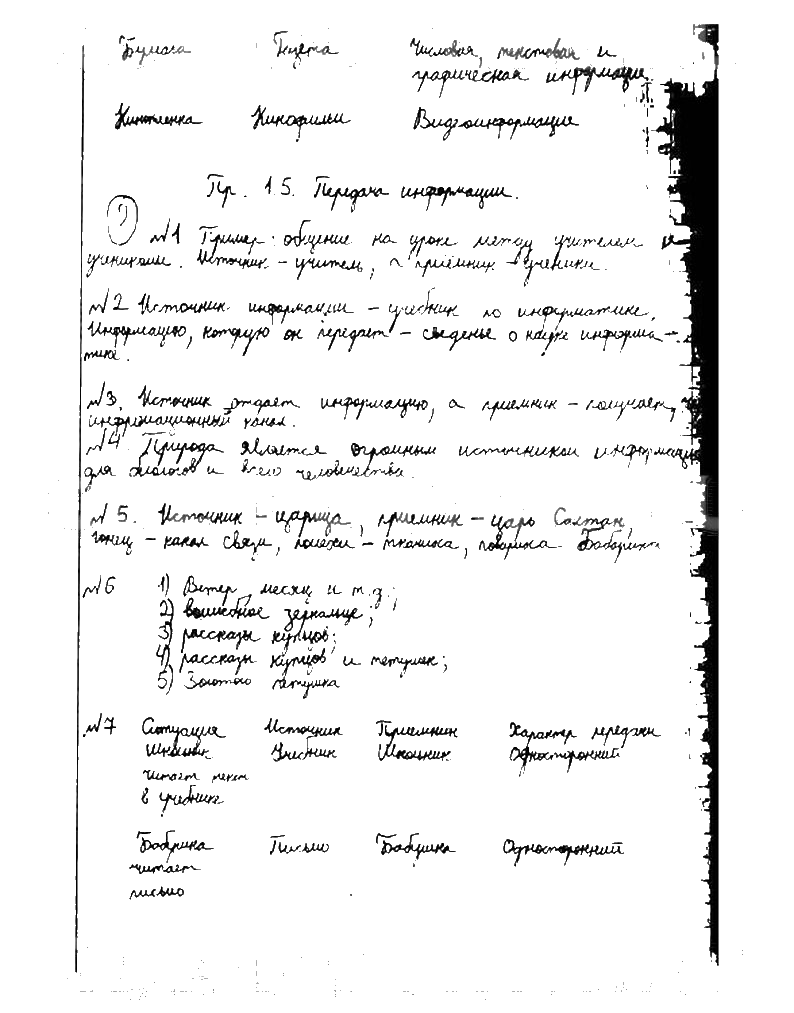 Бумага Газета Числовая, текстовая и
графическая информация
Киноплёнка Кинофильм Видеоинформация
Пр. 1.5. Передача информации.
№1 Пример: общение на уроке между учителем и
учениками. Источник – учитель, а приёмник – ученики.
№2 Источник информации – учебник по информатике.
Информацию, которую он передает – сведенье о науке информа-
тике.
№3. Источник отдает информацию, а приемник – получает,
информационный канал.
№4 Природа является огромным источником информации
для биологов и всего человечества.
№5. Источник – царица, приемник – царь Салтан,
гонец – канал связи, помехи – ткачиха, повариха Бабариха
№6 1) Ветер, месяц и т.д.;
2) волшебное зеркальце;
3) рассказы купцов;
4) рассказы купцов и петушек;
5) Золотого петушка
№7 Ситуация Источник Приемник Характер передачи
Школьник Учебник Школьник Односторонний
читает текст
в учебнике
Бабушка Письмо Бабушка Односторонний
читает
письмо